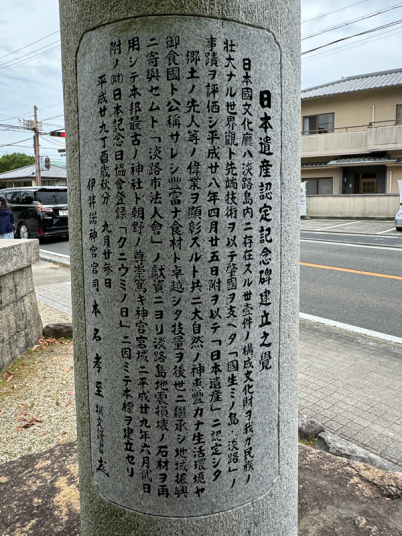 日本遺産認定記念碑建立之覺
日本國文化廳ハ淡路島内ニ存在スル丗壱件ノ構成文化財ヲ我カ民族ノ
壮大ナル世界觀ト先端技術ヲ以テ肇國ヲ支ヘタ「國生ミノ島・淡路」ノ
事蹟ヲ評価シ平成廿八年四月廿五日附ヲ以テ「日本遺産」ニ認定シタ
郷土ノ先人等ノ偉業ヲ顕彰スルト共ニ大自然ノ神惠豊カナ生活環境ヤ
御食國ト公稱サレシ豊富ナ食材ト卓越シタ技量ヲ後世ニ繼承シ地域振興
ニ寄與セムト「淡路市法人會」ノ獻資ニヨリ淡路島地震損壊ノ石材ヲ再
用シテ本邦最古ノ神社ト朝野ノ尊崇篤キ神宮宮域ニ平成廿九年六月貮日
附ノ㈶日本記念日協會登録「クニウミノ日」ニ因ミテ本標ヲ建立セリ
平成廿九丁酉歳秋分 九月廿参日
伊弉諾神宮宮司 本名孝至 撰文謹書